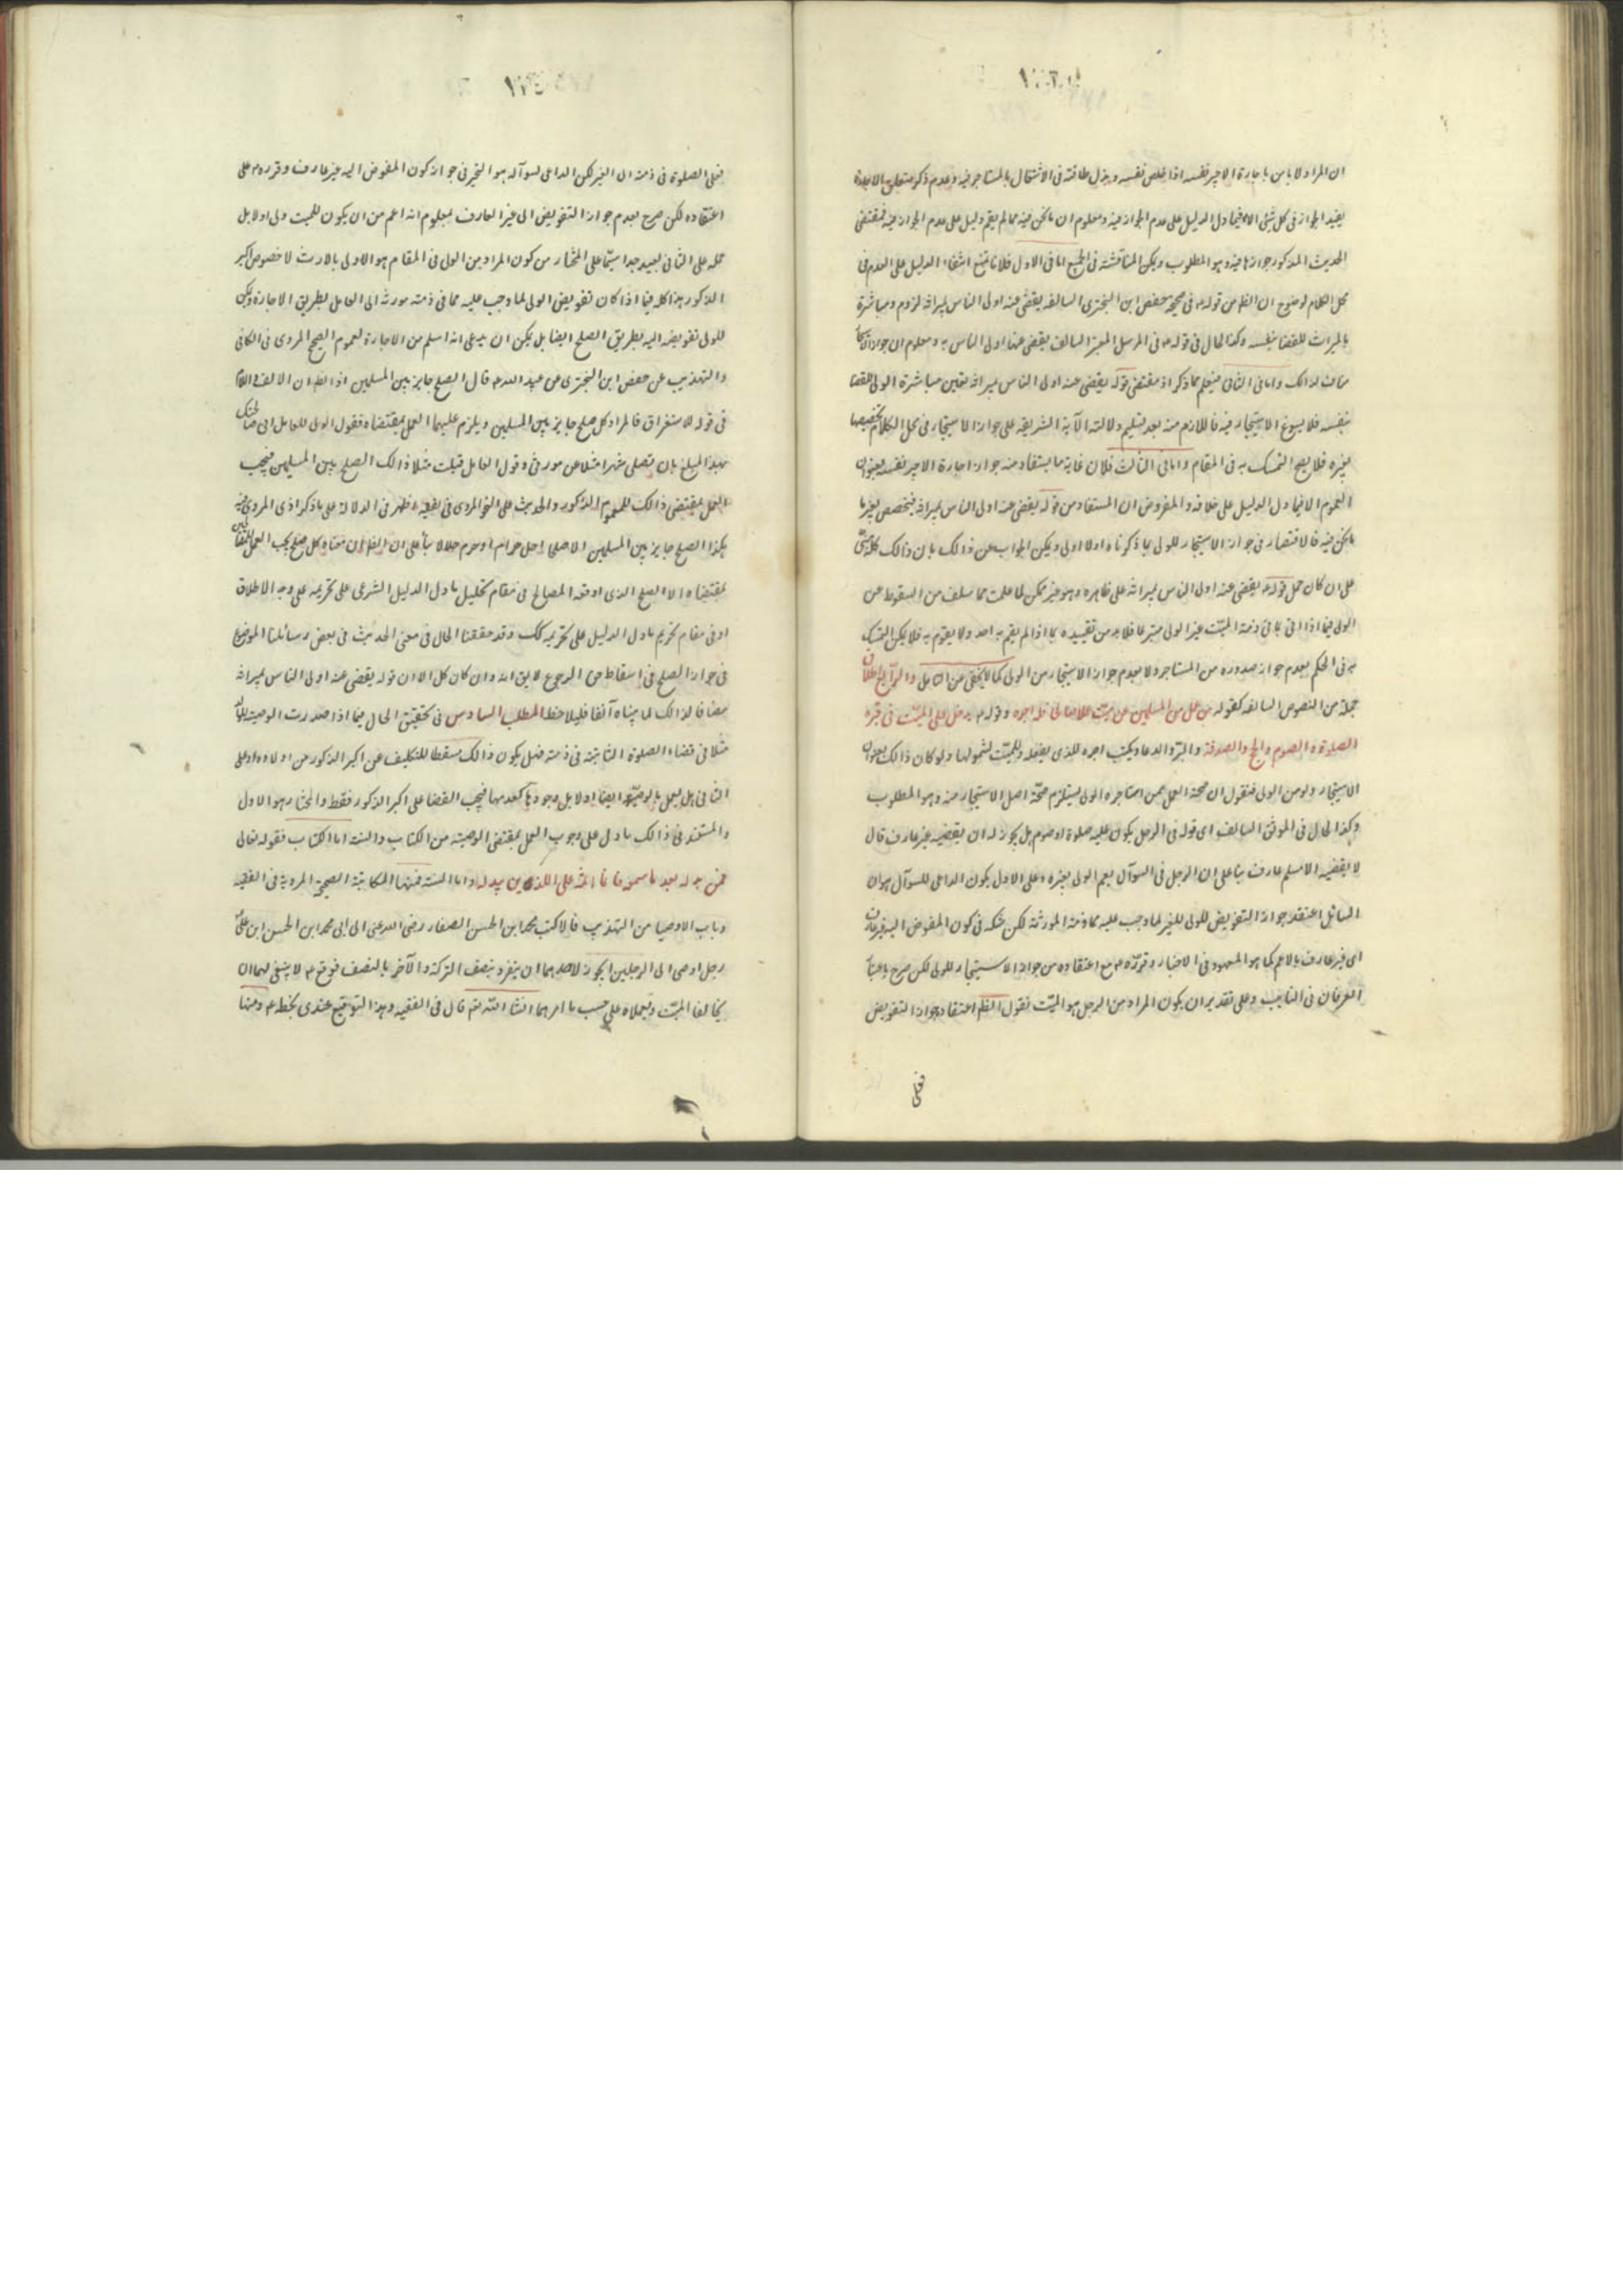 ان المراد لا باس باجارة الاجير نفسه اذا خلص نفسه وبذل طاقته فى الاشتغال بالمستاجر فيه وعدم ذكر متعلق الاجارة
يفيد الجواز فى كل شئ الا فيما دل الدليل على عدم الجواز فيه ومعلوم ان ما نحن فيه مما لم يقم دليل على عدم الجواز فيه فمقتضى
الحديث المذكور جوازها فيه وهو المطلوب ويمكن المناقشة فى الجميع اما فى الاول فلانا نمنع انتفاء الدليل على العدم فى
محل الكلام لوضوح ان الظ من قوله ع فى صحيحة حفص ابن البخترى السالفة يقضى عنه اولى الناس بميراثه لزوم مباشرة
بالميراث للقضا بنفسه وكذا الحال فى قوله ع فى المرسل المعتبر السالف يقضى عنها اولى الناس به ومعلوم ان جواز
مناف لذالك واما فى الثانى فيعلم مما ذكر اذ مقتضى قوله يقضى عنه اولى الناس بميراثه تعين مباشرة الولى للقضا
بنفسه فلا يسوغ الاستيجار فيه فاللازم منه بعد تسليم دلالة الآية الشريفة على جواز الاستيجار فى محل الكلام تخصيصها
بغيره فلا يصح التمسك به فى المقام واما فى الثالث فلان غاية ما يستفاد منه جواز اجارة الاجير نفسه بعنوان
العموم الا فيما دل الدليل على خلافه والمفروض ان المستفاد من قوله يقضى عنه اولى الناس بميراثه فيخصص بغير ما
ما نحن فيه فالاقتصار فى جواز الاستيجار للولى بما ذكرناه اولا اولى ويمكن الجواب عن ذالك بان ذالك كله مبنى
على ان كان حمل قوله ع يقضى عنه اولى الناس بميراثه على ظاهره وهو غير ممكن لما علمت مما سلف من السقوط عن
الولى فيما اذا اتى بما فى ذمة الميت غير الولى متبرعا فلا بد من تقييده بما اذا لم يقم به احد ولا يقوم به فلا يمكن التمسك
به فى الحكم بعدم جواز صدوره من المستاجر ولا بعدم جواز الاستيجار من الولى كما لا يخفى على المتامل والرابع اطلاق
جملة من النصوص السالفة كقوله من عمل من المسلمين عن ميت عملا صالحا فله اجره وقوله ع يدخل على الميت فى قبره
الصلوة والصوم والحج والصدقة والبر والدعا ويكتب اجره للذى يفعله وللميت لشمولها ولو كان ذالك بعنوان
الاستيجار ولو من الولى فنقول ان صحة العمل ممن استاجره الولى يستلزم صحة اصل الاستيجار منه وهو المطلوب
وكذا الحال فى الموثق السالف اى قوله فى الرجل يكون عليه صلوة او صوم هل يجوز له ان يقضيه غير عارف قال
لا يقضيه الا مسلم عارف بنا على ان الرجل فى السؤال يعم الولى بغيره وعلى الاول يكون الداعى للسؤال هو ان
السائل اعتقد جواز التفويض للولى للغير لما وجب عليه مما فى ذمة المورثه لكن شكه فى كون المفوض اليه غير عارف
اى غير عارف بالاعم كما هو المعهود فى الاخبار وقرره ع مع اعتقاده من جواز الاستيجار للولى لكن صرح باعتبار
العرفان فى النايب وعلى تقدير ان يكون المراد من الرجل هو الميت نقول الظ اعتقاد جواز التفويض
فعلى
فعلى الصلوة فى ذمته الى الغير لكن الداعى لسؤاله هو التحير فى جواز كون المفوض اليه غير عارف وقرره ع على
اعتقاده لكن صرح بعدم جواز التفويض الى غير العارف فمعلوم انه اعم من ان يكون للميت ولى اولا بل
حمله على الثانى بعيد جدا سيما على المختار من كون المراد من الولى فى المقام هو الاولى بالارث لا خصوص اكبر
الذكور هذا كله فيما اذا كان تفويض الولى لما وجب عليه مما فى ذمته مورثه الى العامل بطريق الاجارة ويمكن
للولى تفويضه اليه بطريق الصلح ايضا بل يمكن ان يدعى انه اسلم من الاجارة لعموم الصحيح المروى فى الكافى
والتهذيب عن حفص ابن البخترى عن عبد الله ع قال الصلح جايز بين المسلمين اذ الظ ان الالف واللام
فى قوله للاستغراق فالمراد كل صلح جايز بين المسلمين ويلزم عليهما العمل بمقتضاه فقول الولى للعامل انى صالحتك
بهذا المبلغ بان تصلى شهرا مثلا عن مورثى وقول العامل قبلت مثلا ذالك الصلح بين المسلمين فيجب
العمل بمقتضى ذالك للعموم المذكور والحديث على النحو المروى فى الفقيه اظهر فى الدلالة على ما ذكر اذ المروى فيه
هكذا الصلح جايز بين المسلمين الا صلحا احل حراما او حرم حلالا بنأ على ان الظ ان معناه كل صلح يجب العمل
بمقتضاه الا الصلح الذى اوقعه المصالح فى مقام تحليل ما دل الدليل الشرعى على تحريمه على وجه الاطلاق
او فى مقام تحريم ما دل الدليل على تحريمه كك وقد حققنا الحال فى معنى الحديث فى بعض رسائلنا الموضوع
فى جواز الصلح فى اسقاط حق الرجوع لا يق انه وان كان كل الا ان قوله يقضى عنه اولى الناس بميراثه
مضافا لذالك لما بيناه آنفا فليلاحظ المطلب السادس فى تحقيق الحال فيما اذا صدرت الوصية
مثلا فى قضاء الصلوة الثابتة فى ذمته فهل يكون ذالك مسقطا للتكليف عن اكبر الذكور من اولاده او على
الثانى هل يعمل بالوصية ايضا اولا بل وجودها كعدمها فيجب القضا على اكبر الذكور فقط والمختار هو الاول
والمستند فى ذالك ما دل على وجوب العمل بمقتضى الوصية من الكتاب والسنة اما الكتاب فقوله تعالى
فمن بدله بعد ما سمعه فانما اثمه على اللذين يبدلونه واما السنة فمنها المكاتبة الصحيحة المروية فى الفقيه
وباب الاوصيا من التهذيب قالا كتب محمد ابن الحسن الصفار رضى الله عنه الى ابى محمد ابن الحسن ابن على ع
رجل اوصى الى الرجلين ايجوز لاحدهما ان ينفرد بنصف التركة والآخر بالنصف فوقع ع لا ينبغى لهما ان
يخالفا الميت ويعملان على حسب ما امرهما انشا الله ثم قال فى الفقيه وهذا التوقيع عندى بخطه ع ومنها